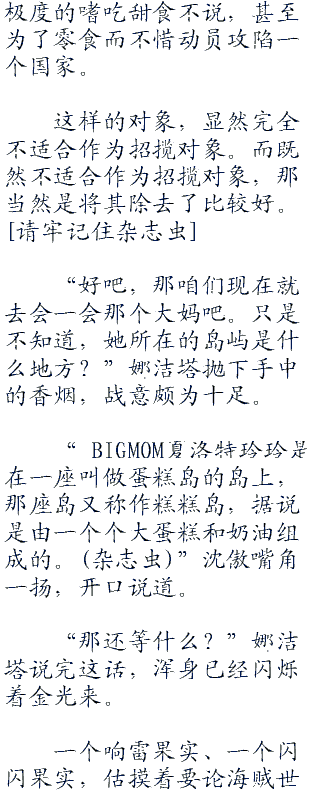 极度的嗜吃甜食不说，甚至
为了零食而不惜动员攻陷一
个国家。
这样的对象，显然完全
不适合作为招揽对象。而既
然不适合作为招揽对象，那
当然是将其除去了比较好。
[请牢记住杂志虫]
“好吧，那咱们现在就
去会一会那个大妈吧。只是
不知道，她所在的岛屿是什
么地方？”娜洁塔抛下手中
的香烟，战意颇为十足。
“ BIGMOM夏洛特玲玲是
在一座叫做蛋糕岛的岛上，
那座岛又称作糕糕岛，据说
是由一个个大蛋糕和奶油组
成的。(杂志虫)”沈傲嘴角
一扬，开口说道。
“那还等什么？”娜洁
塔说完这话，浑身已经闪烁
着金光来。
一个响雷果实、一个闪
闪果实，估摸着要论海贼世